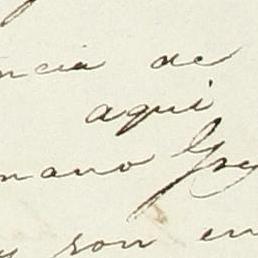 ncia de
aqui
mano Gre
y son en